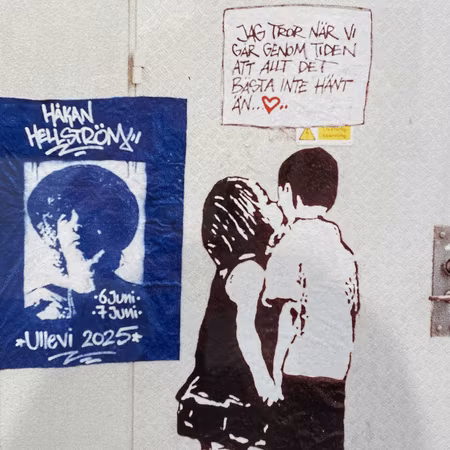 JAG TROR NÄR VI
GÅR GENOM TIDEN
ATT ALLT DET
BÄSTA INTE HÄNT
ÄN..♥..
HÅKAN
HELLSTRÖM
·6 Juni·
·7 Juni·
*Ullevi 2025*